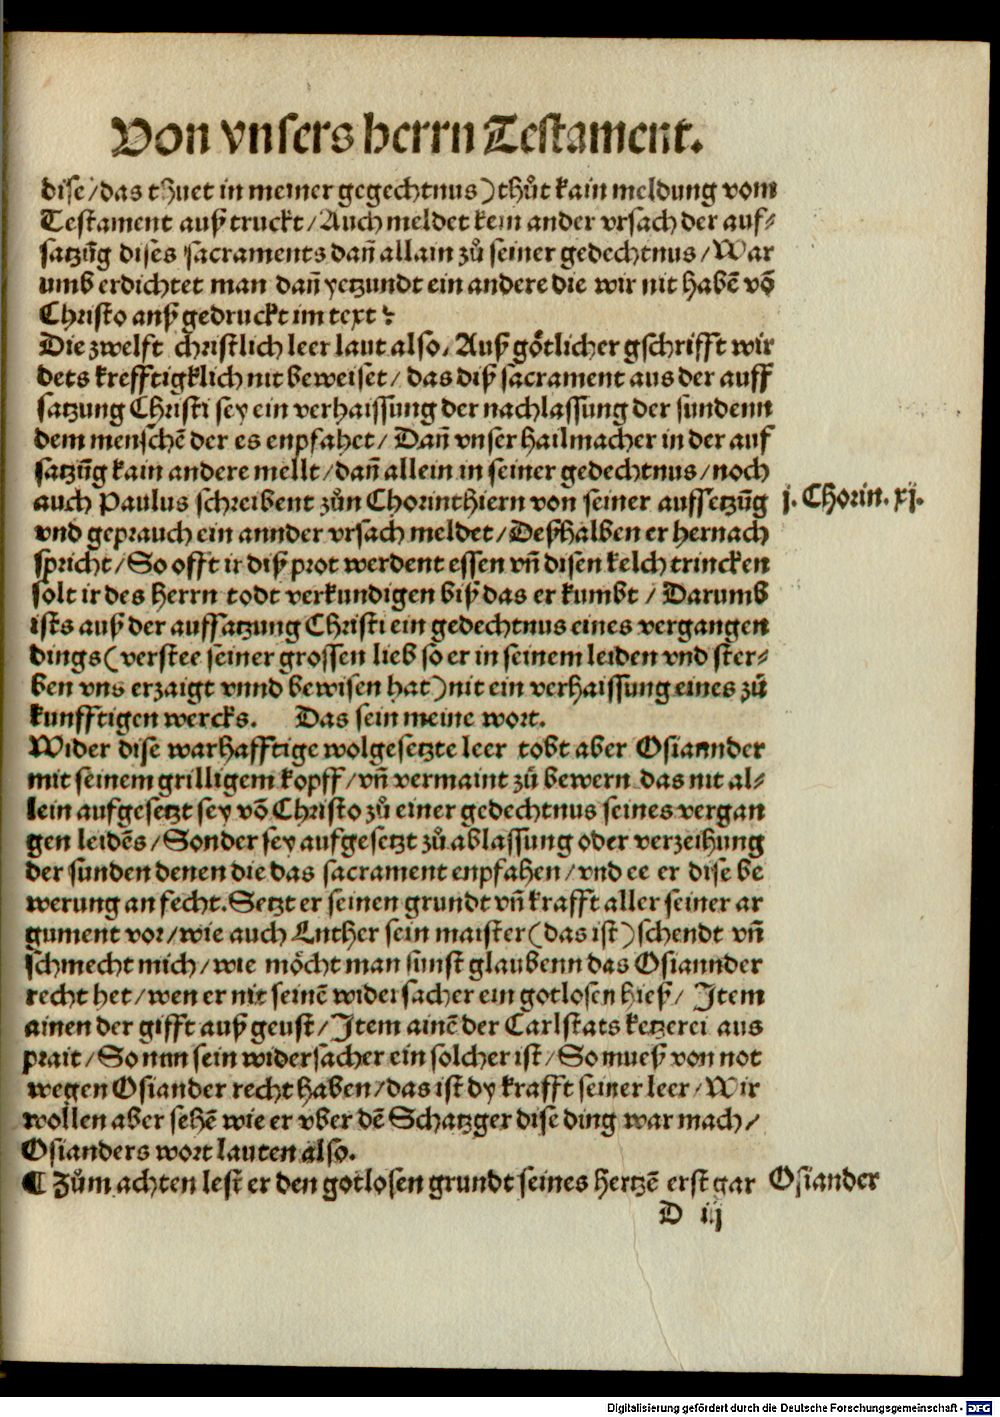 Von vnsers herrn Testament.
dise/das thuet in meiner gegechtnus) thůt kain meldung vom
Testament auß truckt/Auch meldet kein ander vrsach der auf⸗
satzūg dises sacraments dañ allain zů seiner gedechtnus/War
umb erdichtet man dañ yetzundt ein andere die wir nit habē võ
Christo auß gedruckt im text?
Die zwelft christlich leer laut also. Auß götlicher gschrifft wir
dets krefftigklich nit beweiset/ das diß sacrament aus der auff
satzung Christi sey ein verhaissung der nachlassung der sundenn
dem menschē der es enpfahet/ Dañ vnser hailmacher in der auf
satzūg kain andere mellt/dañ allein in seiner gedechtnus/noch
auch Paulus schreibent zůn Chorinthiern von seiner auffsetzūg
j. Chorin. xj.
vnd geprauch ein annder vrsach meldet/Deßhalben er hernach
spricht/So offt ir diß prot werdent essen vñ disen kelch trincken
solt ir des herrn todt verkundigen biß das er kumbt / Darumb
ists auß der auffsatzung Christi ein gedechtnus eines vergangen
dings(verstee seiner grossen lieb so er in seinem leiden vnd ster⸗
ben vns erzaigt vnnd bewisen hat)nit ein verhaissung eines zů
kunfftigen wercks. Das sein meine wort.
Wider dise warhafftige wolgesetzte leer tobt aber Osiannder
mit seinem grilligem kopff/vñ vermaint zů bewern das nit al⸗
lein aufgesetzt sey võ Christo zů einer gedechtnus seines vergan
gen leidēs/Sonder sey aufgesetzt zů ablassung oder verzeihung
der sunden denen die das sacrament enpfahen/vnd ee er dise be
werung an fecht. Setzt er seinen grundt vñ krafft aller seiner ar
gument vor/wie auch Luther sein maister(das ist)schendt vñ
schmecht mich/wie möcht man sunst glaubenn das Osiannder
recht het/wen er nit seinē widersacher ein gotlosen hieß/ Item
ainen der gifft auß geust/Item ainē der Carlstats ketzerei aus
prait/So nun sein widersacher ein solcher ist/So mueß von not
wegen Osiander recht haben/das ist dy krafft seiner leer/Wir
wollen aber sehē wie er vber dē Schatzger dise ding war mach/
Osianders wort lauten also.
¶ Zům achten lest er den gotlosen grundt seines hertzē erst gar
Osiander
D iij
Digitalisierung gefördert durch die Deutsche Forschungsgemeinschaft - DFG